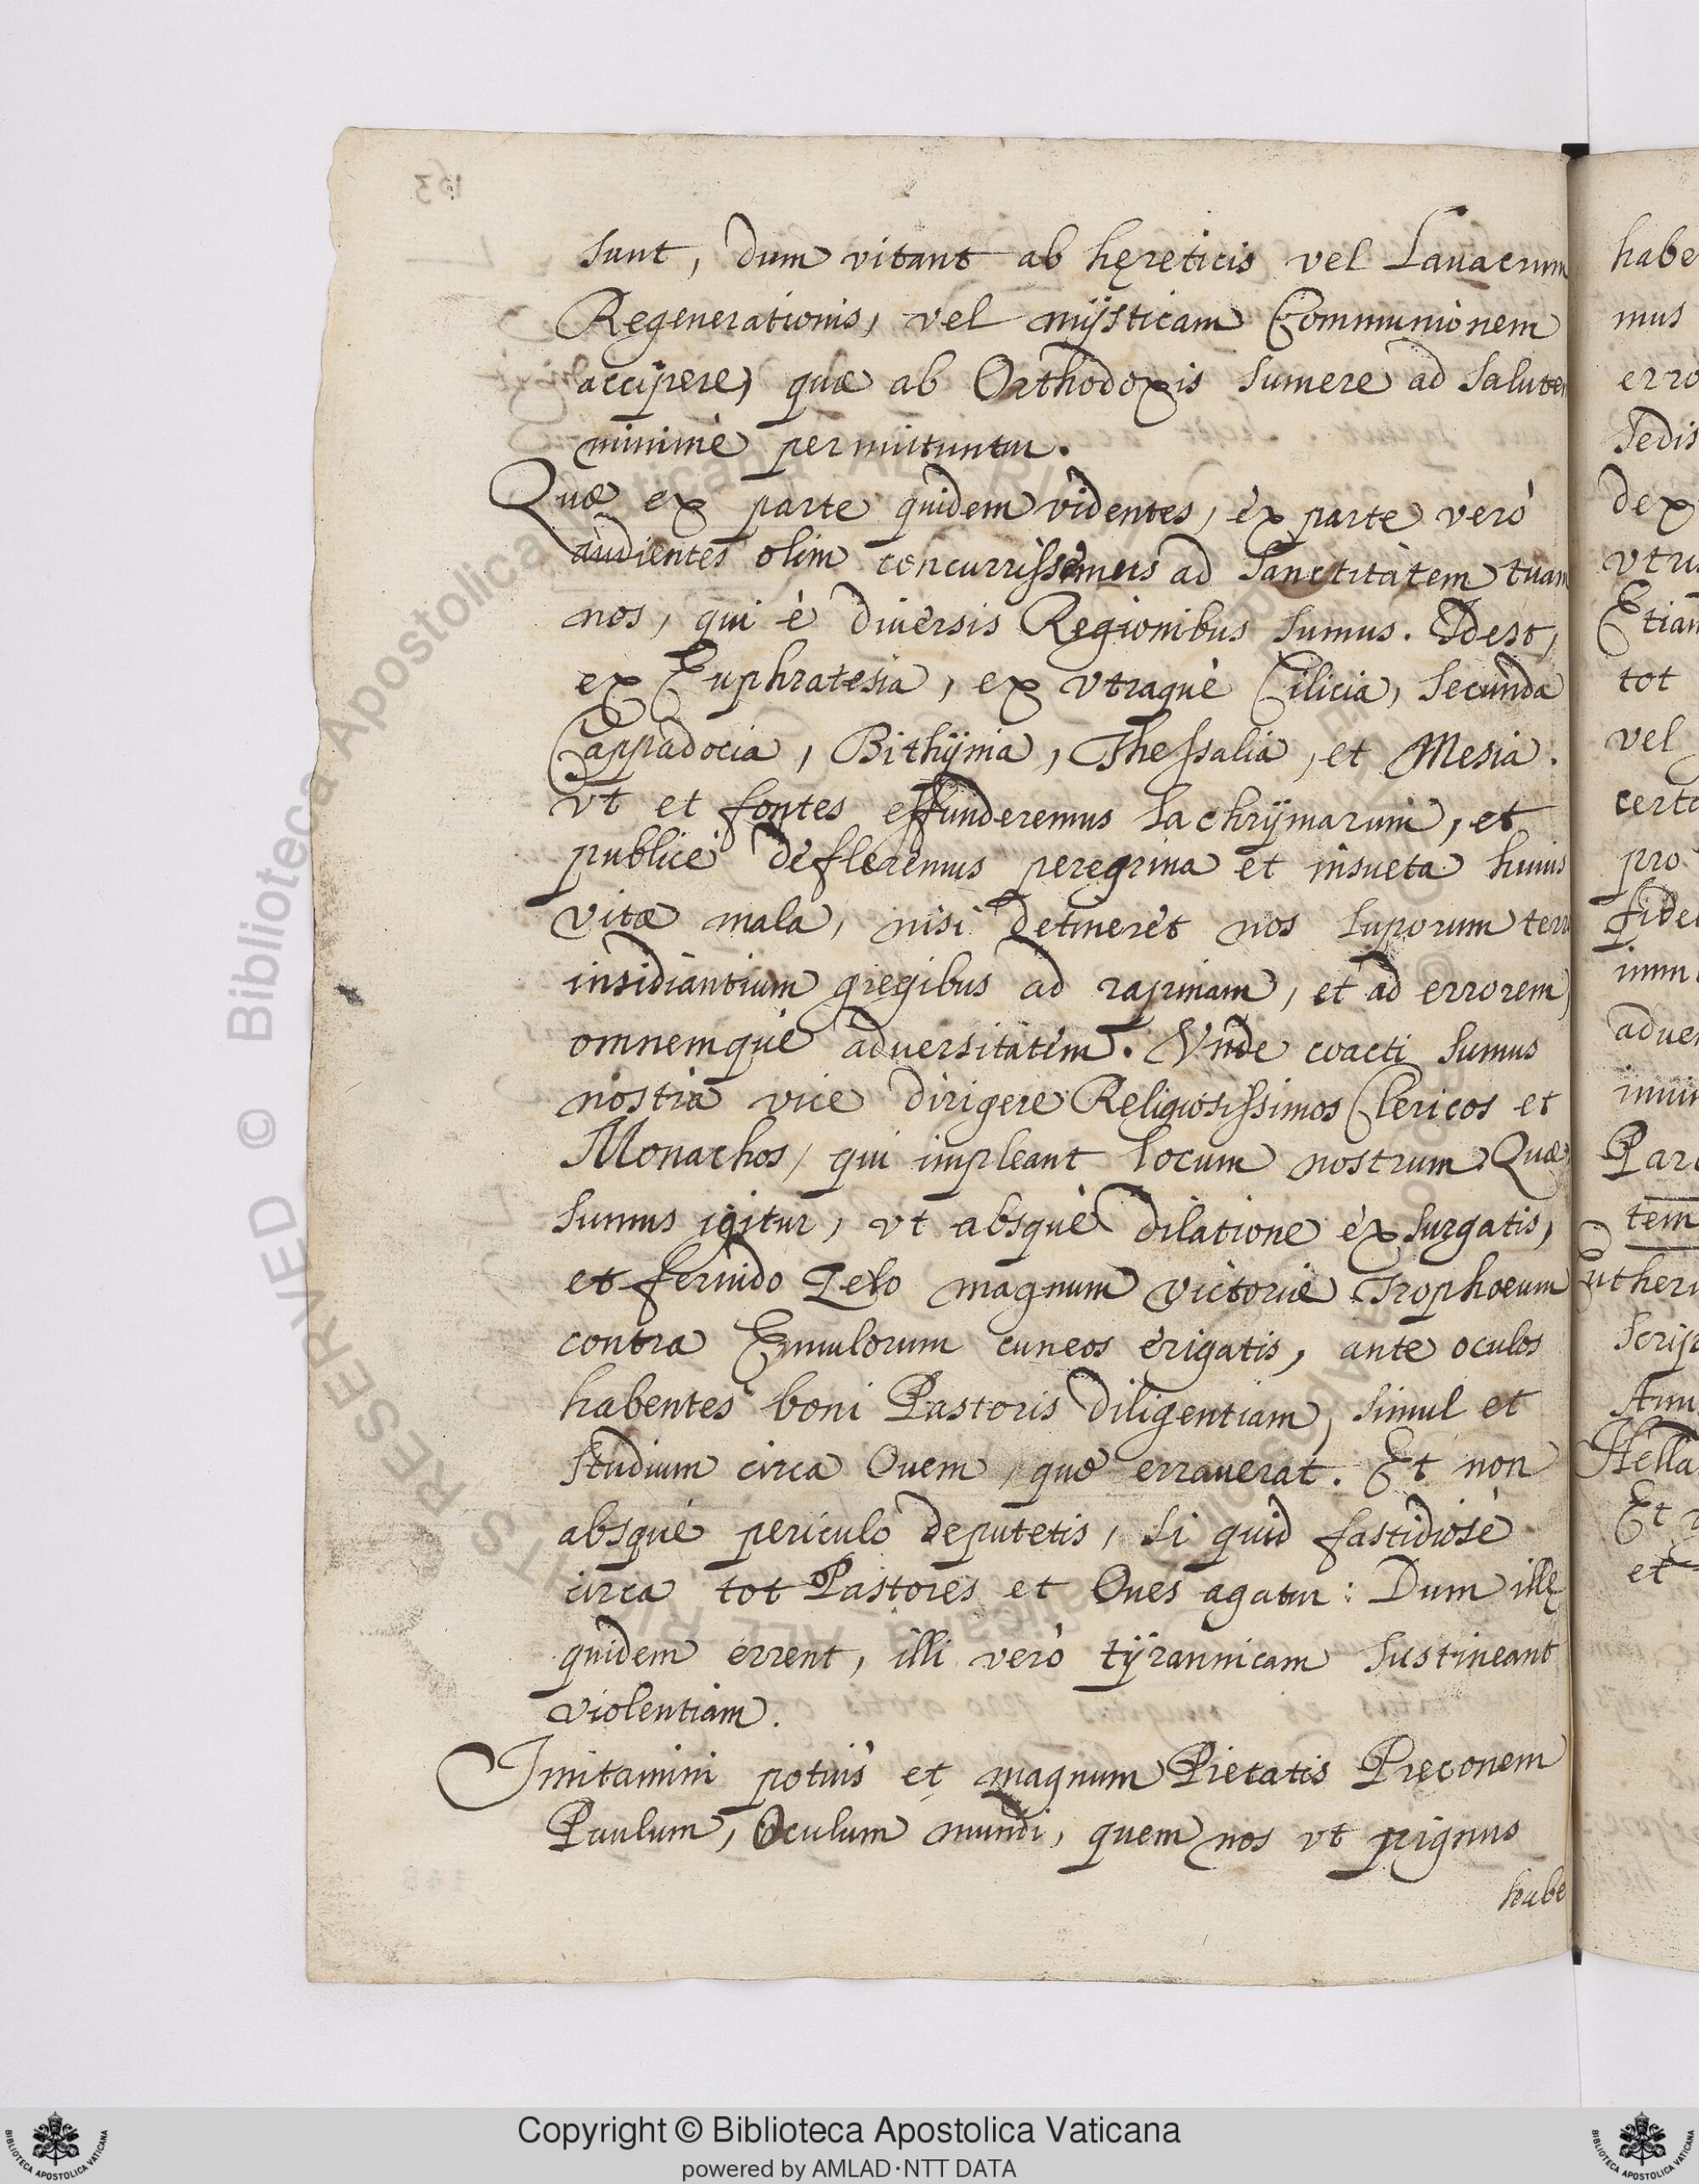 sunt, dum vitant ab hęreticis vel Lauacrum
Regenerationis, vel mÿsticam Communionem
accipere, quæ ab Orthodoxis sumere ad salutem
minimè permittuntur.
Quæ ex parte quidem videntes, ex parte verò
audientes olim concurrissemus ad Sanctitatem tuam
nos, qui è diuersis Regionibus sumus. Idest,
ex Euphratesia, ex vtraque Cilicia, secunda
Cappadocia, Bithÿnia, Thessalia, et Mesia.
vt et fontes effunderemus lachrÿmarum, et
publicè defleremus peregrina et insueta huius
vitæ mala, nisi detineret nos luporum
insidiantium gregibus ad rapinam, et ad errorem,
omnemque aduersitatem. Vnde coacti sumus
nostra vice dirigere Religiosissimos Clericos et
Monachos, qui impleant locum nostrum. Quæ
sumus igitur, vt absque dilatione exsurgatis,
et feruido Zelo magnum victoriæ Trophoeum
contra Emulorum cuneos erigatis, ante oculos
habentes boni Pastoris diligentiam, simul et
studium circa Ouem, quæ errauerat. Et non
absque periculo deputetis, si quid fastidiosè
circa tot Pastores et Oues agatur: Dum illę
quidem errent, illi verò tÿrannicam sustineant
violentiam.
Imitamini potius et magnum Pietatis Pręconem
Paulum, Oculum mundi, quem nos vt pignus
habe
163
habe
mus
erro
sedis
dex
vtri
Etiam
tot
vel
certa
pro
fide
adue
Par
tem
Euther
Scrip
Hella
Et
et
Copyright © Biblioteca Apostolica Vaticana
powered by AMLAD·NTT DATA
© Biblioteca Apostolica Vaticana ALL RIGHTS RESERVED
BIBLIOTECA APOSTOLICA VATICANA
BIBLIOTECA APOSTOLICA VATICANA